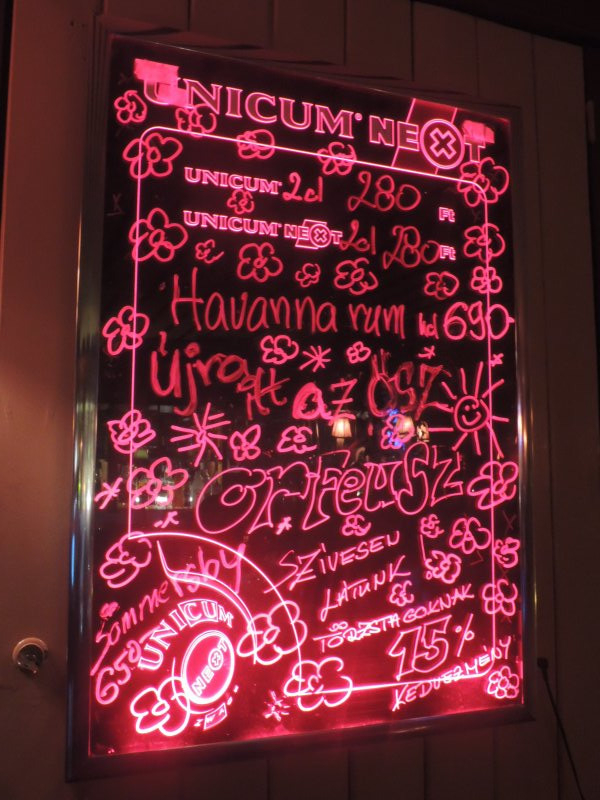 UNICUM® NEXT
UNICUM® 2cl 280 Ft
UNICUM® NEXT 2cl 280 Ft
Havanna rum 4cl 690.
Újra itt az ŐSZ
ORFEUSZ
SZÍVESEN
LÁTUNK
TÖRZSTAGOKNAK
15%
KEDVEZMÉNY
Sommersby
650
UNICUM
NEXT